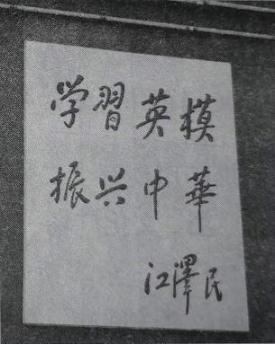 学習英模
振兴中華
江澤民